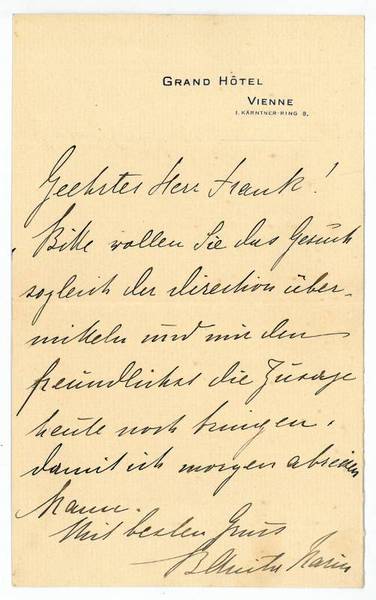 GRAND HÔTEL
VIENNE
I. KÄRNTNER RING 9.
Geehrter Herr Frank!
Bitte wollen Sie das Gesuch
sogleich der Direction über-
mitteln und mir
freundlichst die Zusage
heute noch bringen,
damit ich morgen abreisen
kann.
Mit besten Gruss